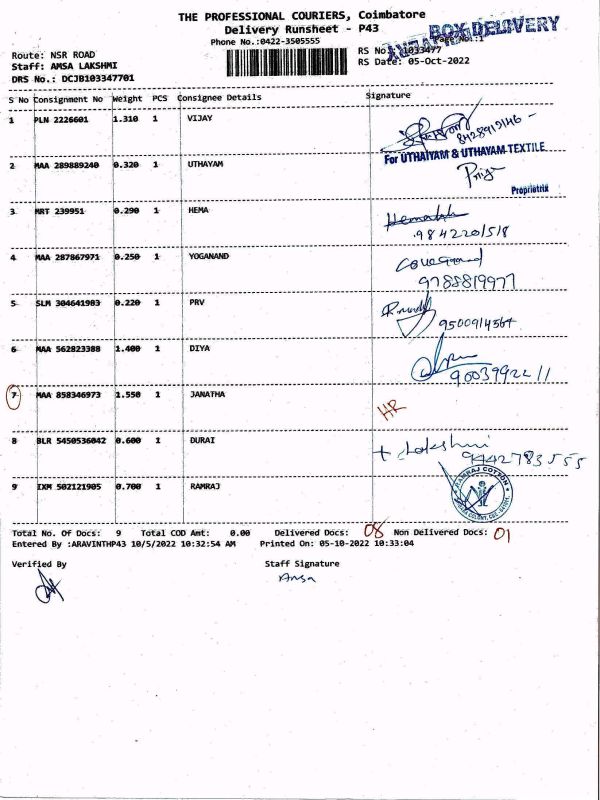 THE PROFESSIONAL COURIERS, Coimbatore
BOX DELIVERY
Delivery Runsheet - P43
Phone No.:0422-3505555
Route: NSR ROAD
RS No.: 1033477
Staff: AMSA LAKSHMI
RS Date: 05-Oct-2022
DRS No.: DCJB103347701
S No Consignment No Weight PCS Consignee Details Signature
1 PLN 2226601 1.310 1 VIJAY
8428919146 -
For UTHAIYAM & UTHAYAM TEXTILE
2 MAA 289889240 0.320 1 UTHAYAM
Priya
Proprietrix
3 MRT 239951 0.290 1 HEMA
9842201518
4 MAA 287867971 0.250 1 YOGANAND
9788819977
5 SLM 304641903 0.220 1 PRV
9500914564
6 MAA 562823388 1.400 1 DIYA
9003992211
7 MAA 858346973 1.550 1 JANATHA
HR
8 BLR 5450536042 0.600 1 DURAI
Lakshmi
9442783555
9 IXM 502121905 0.700 1 RAMRAJ
RAMRAJ COTTON
Total No. Of Docs: 9 Total COD Amt: 0.00 Delivered Docs: 08 Non Delivered Docs: 01
Entered By :ARAVINTHP43 10/5/2022 10:32:54 AM Printed On: 05-10-2022 10:33:04
Verified By Staff Signature
Amsa